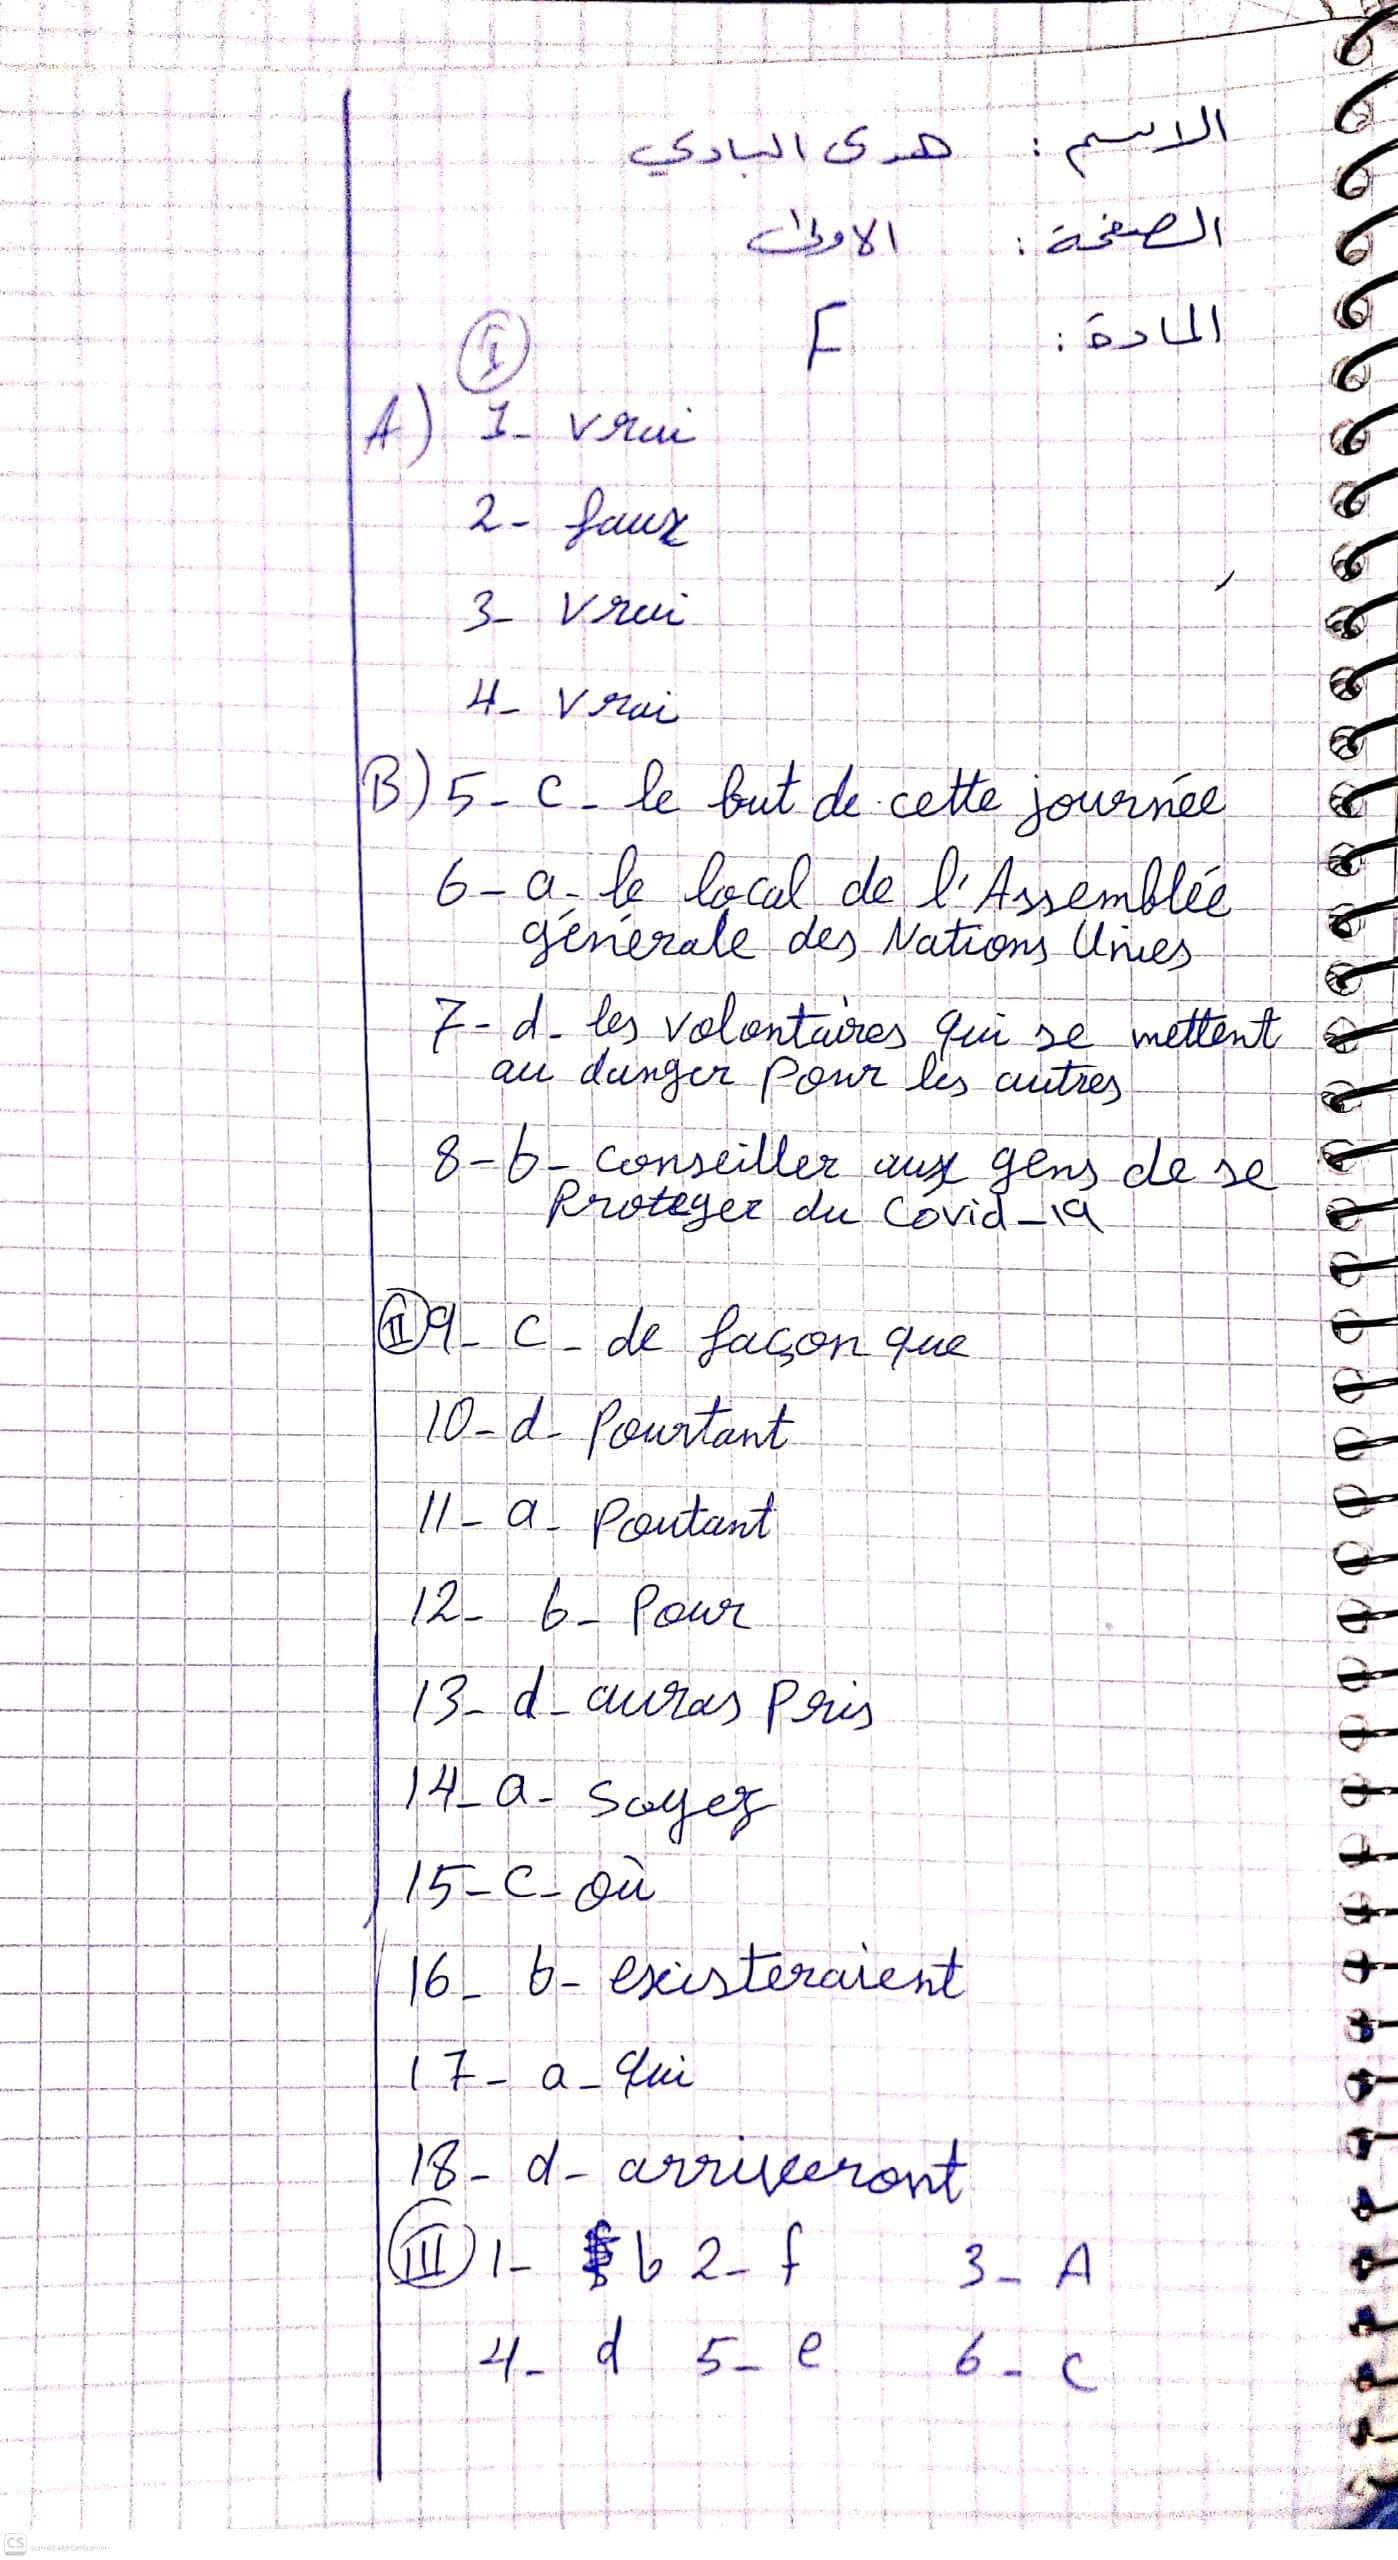 الاسم : هدى البادي
الصفحة : الاولى
المادة : F
I
A) 1- vrai
2- faux
3- vrai
4- vrai
B) 5- c- le but de cette journée
6- a- le local de l'Assemblée
générale des Nations Unies
7- d- les volontaires qui se mettent
au danger pour les autres
8- b- conseiller aux gens de se
Protéger du Covid-19
II 9- c- de façon que
10- d- Pourtant
11- a- Poutant
12- b- Pour
13- d- auras Pris
14- a- soyez
15- c- où
16- b- existeraient
17- a- qui
18- d- arriveront
III 1- b 2- f 3- A
4- d 5- e 6- c
CS Scanned with CamScanner